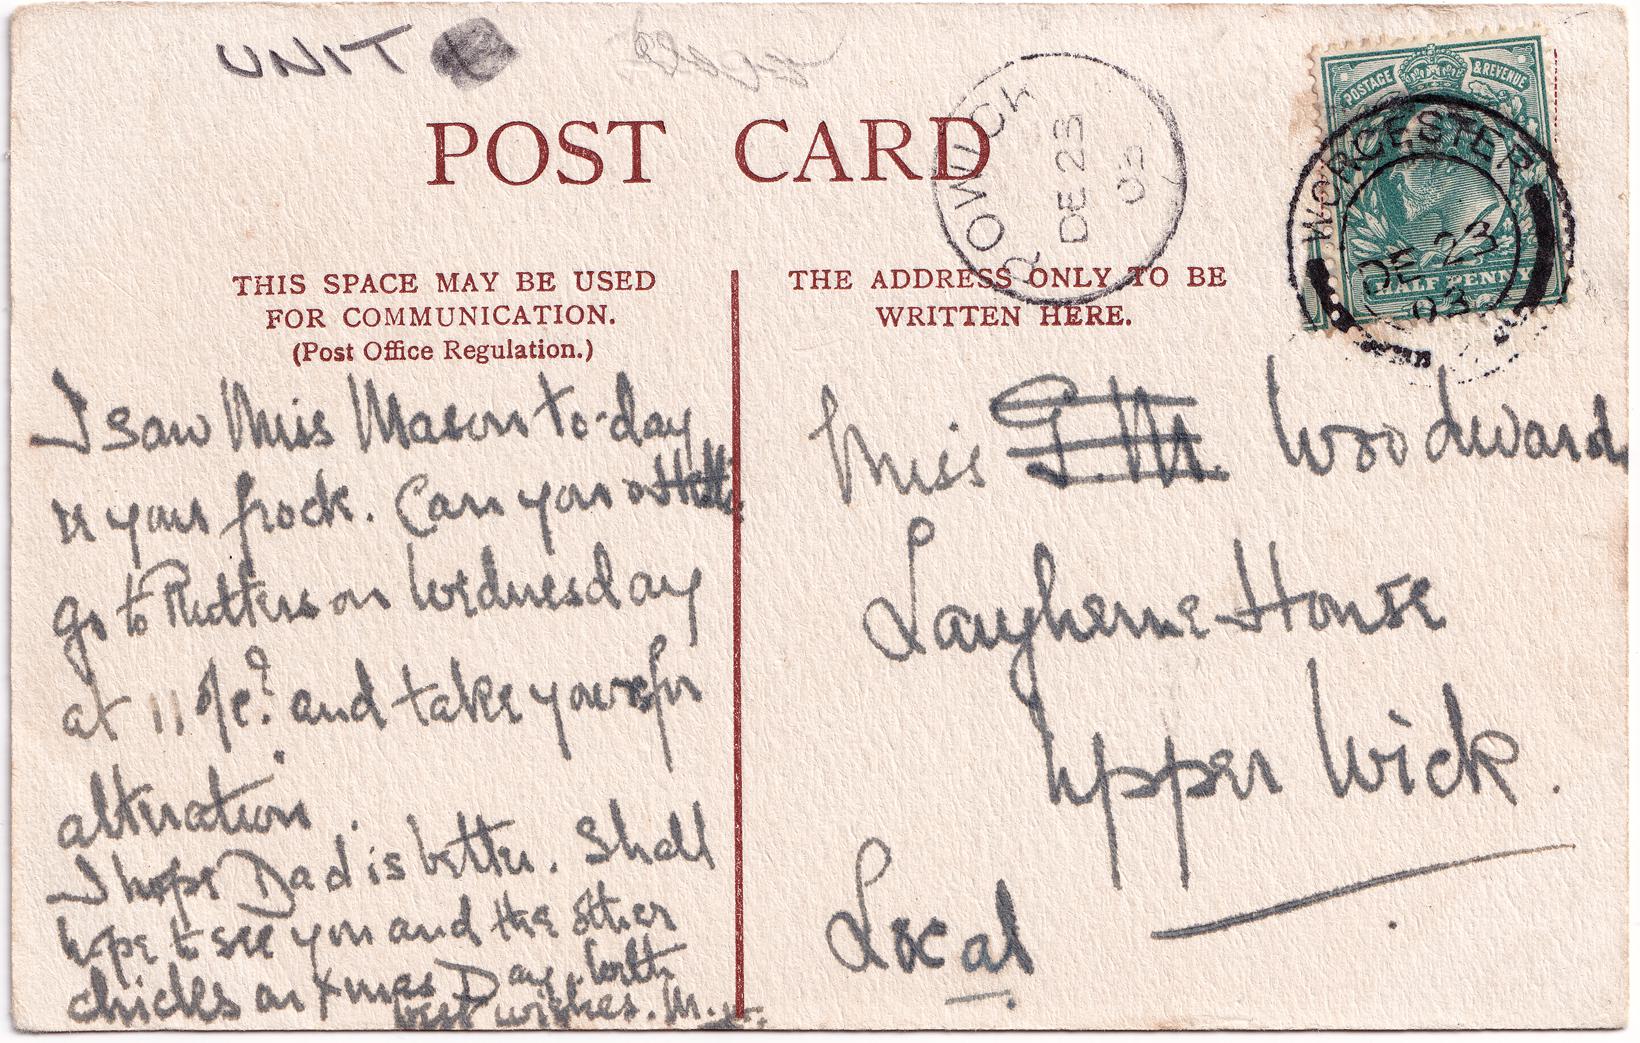 UNIT
POST CARD
ROWICK
DE 23
03
POSTAGE & REVENUE
HALF PENNY
WORCESTER
DE 23
03
THIS SPACE MAY BE USED
FOR COMMUNICATION.
(Post Office Regulation.)
I saw Miss Mason to-day
re your frock. Can you
go to Rutters on Wednesday
at 11 o/c? and take yours for
alteration.
I hope Dad is better. Shall
hope to see you and the other
chicks on Xmas Day. With
best wishes. M.
THE ADDRESS ONLY TO BE
WRITTEN HERE.
Miss G.M. Woodward
Laugherne House
Upper Wick.
Local